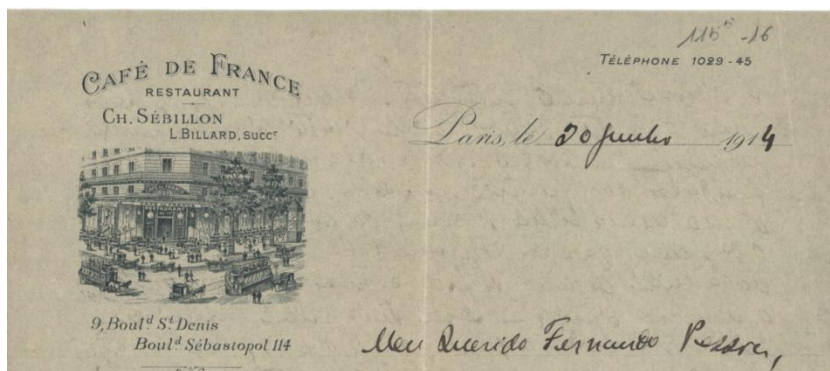 115⁵-16
TÉLÉPHONE 1029-45
CAFÉ DE FRANCE
RESTAURANT
CH. SÉBILLON
L. BILLARD, SUCCʳ
Paris, le 20 Junho 1914
9, Boulᵈ Sᵗ Denis
Boulᵈ Sébastopol 114
Meu Querido Fernando Pessoa,